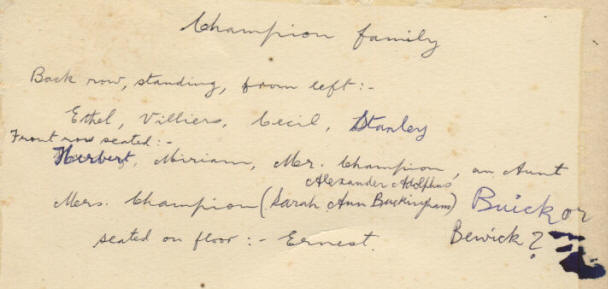 Champion family
Back row, standing, from left:-
Ethel, Villiers, Cecil, Stanley
Front row seated:-
Herbert, Miriam, Mr. Champion, an Aunt
Alexander Adolphus
Mrs. Champion (Sarah Ann Buckingham) Buick or
seated on floor:- Ernest. Bewick?